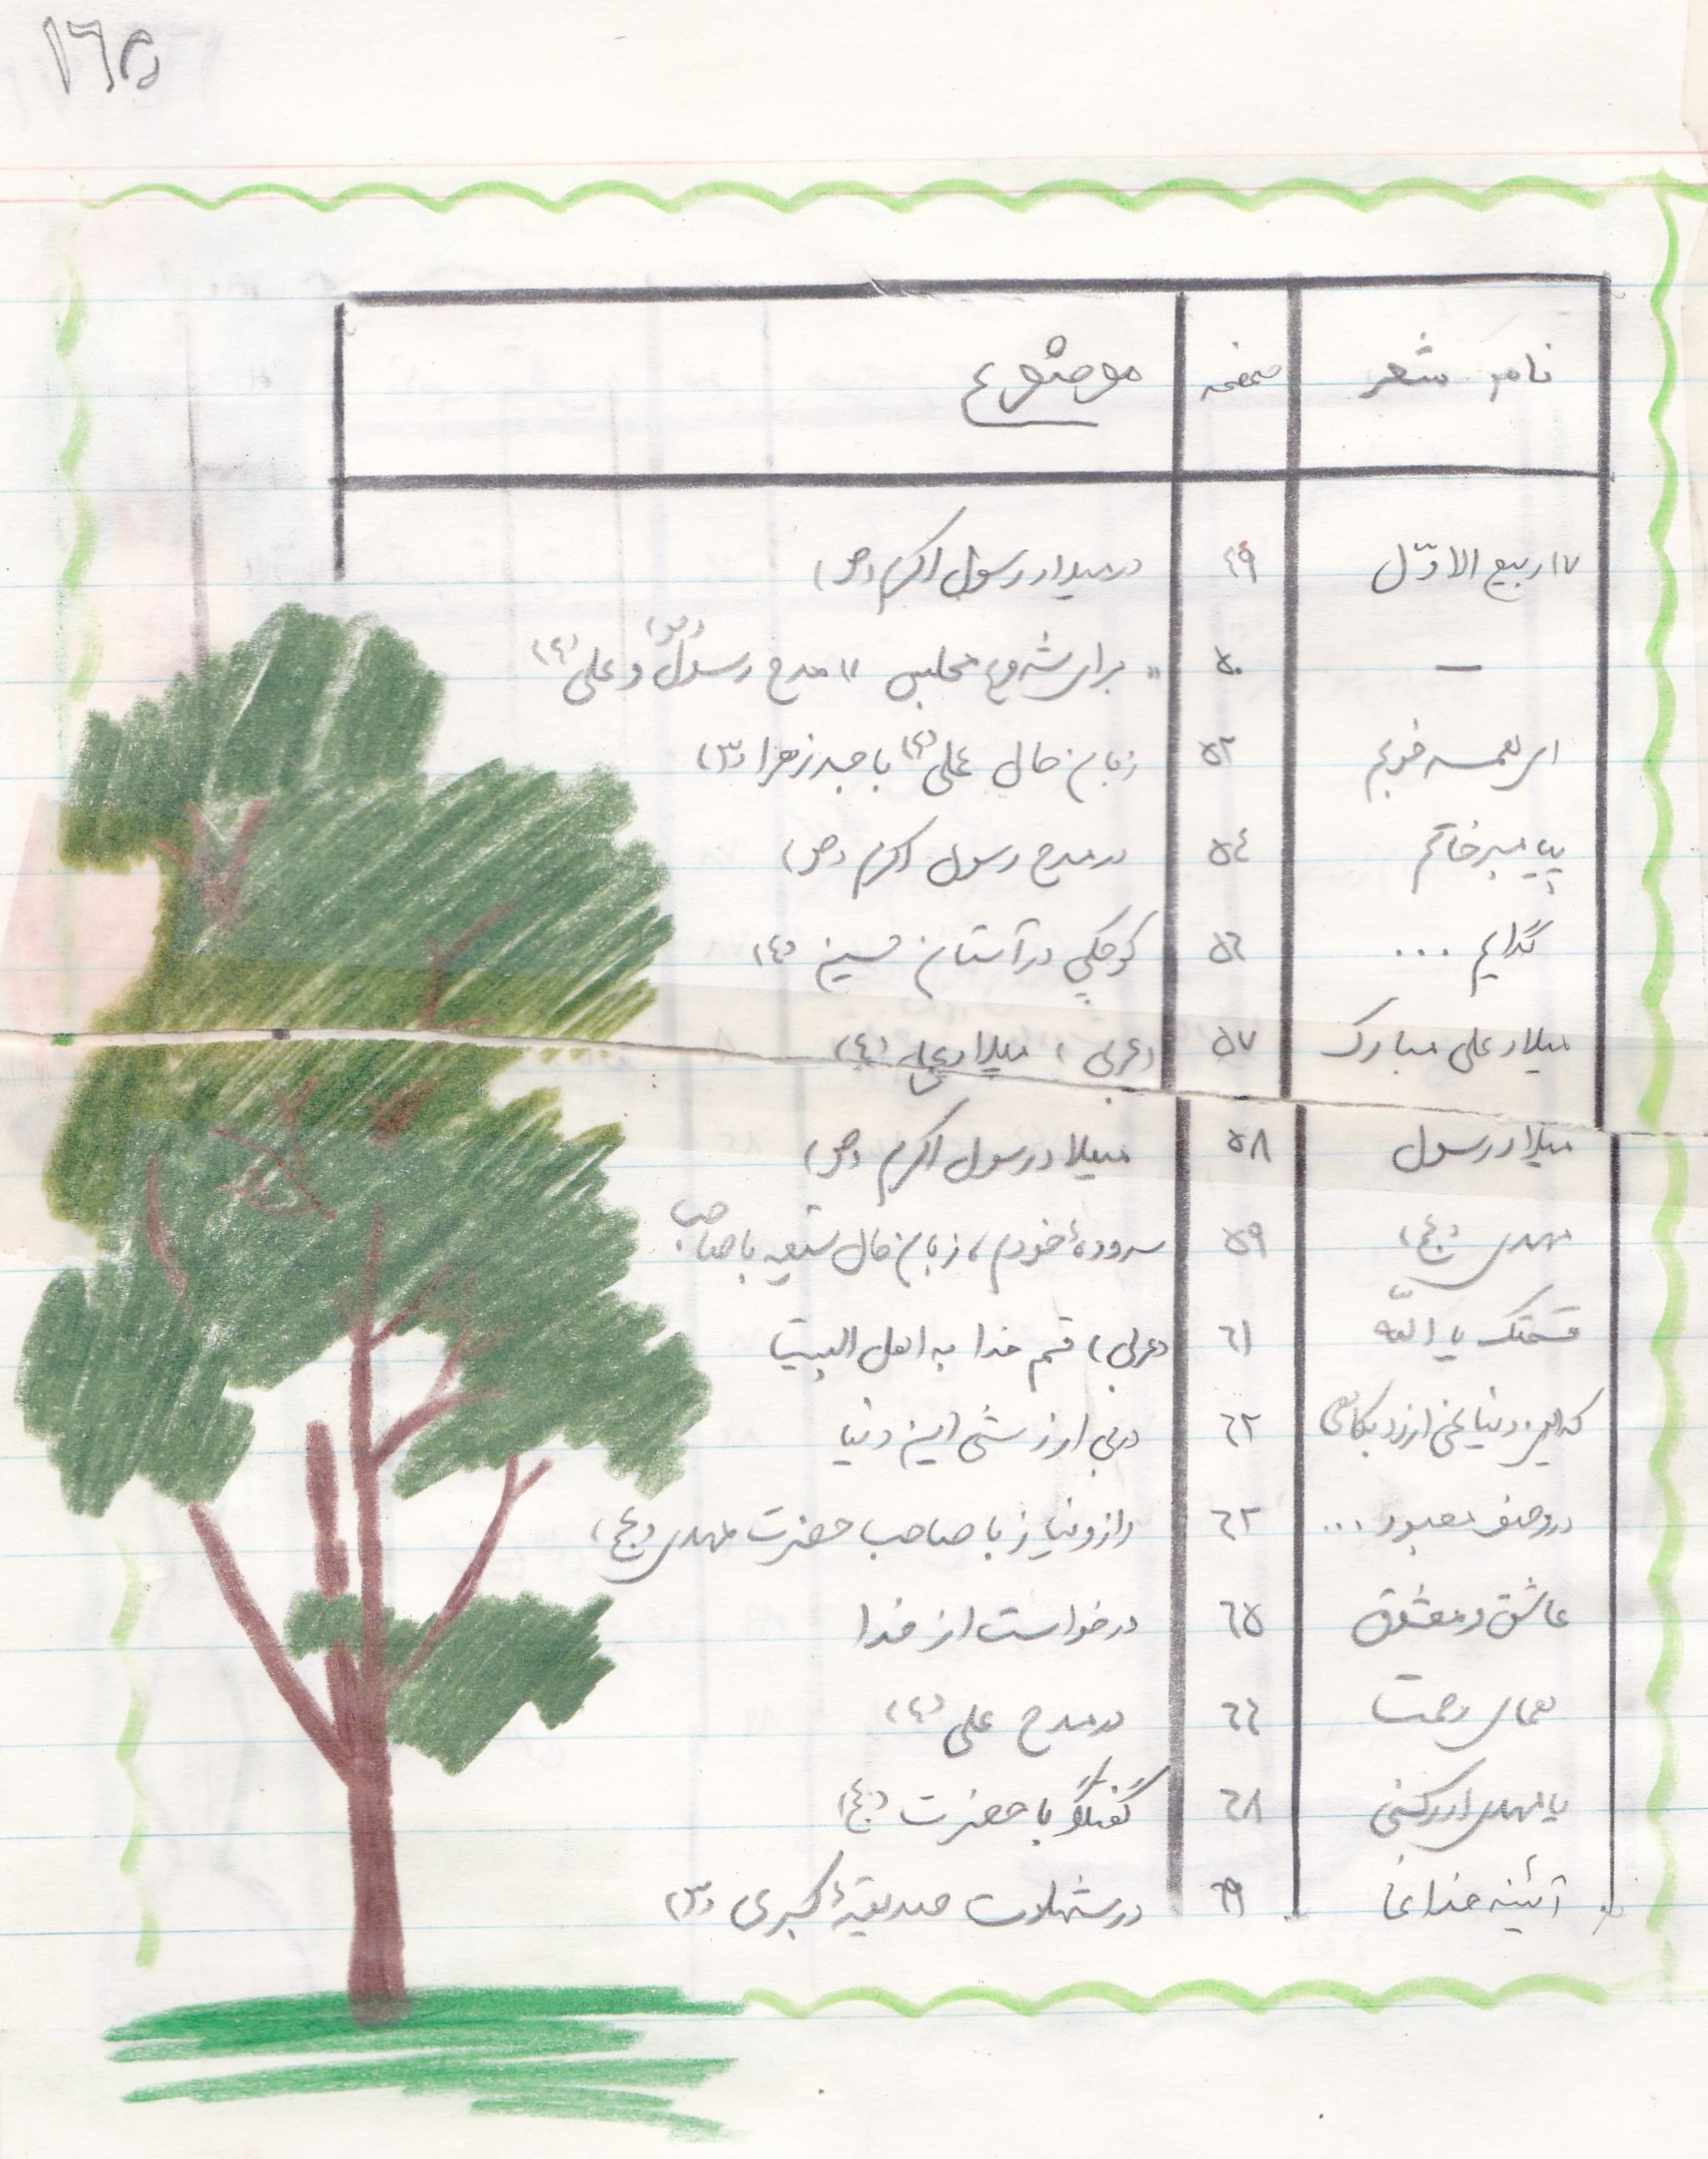 ۱۶۵
نام شعر صفحه موضوع
۱۷ ربیع الاوّل ۴۹ در میلاد رسول اکرم (ص)
- ۵۰ " برای شروع مجلس " مدح رسول (ص) و علی (ع)
ای همسر خوبم ۵۲ زبان حال علی (ع) با حضرت زهرا (س)
پیامبر خاتم ۵۴ در مدح رسول اکرم (ص)
گدایم ... ۵۶ کوچکی در آستان حسین (ع)
میلاد علی مبارک ۵۷ (عربی) میلاد علی (ع)
میلاد رسول ۵۸ میلاد رسول اکرم (ص)
مهدی (عج) ۵۹ سرودهٔ خودم، زبان حال شیعه با صاحب
قسمتک یا الله ۶۱ (عربی) قسم خدا به اهل البیت
که این دنیا نمی ارزد بکاهی ۶۲ در بی ارزشی این دنیا
در وصف معبود ... ۶۳ راز و نیاز با صاحب حضرت مهدی (عج)
عاشق و معشوق ۶۵ درخواست از خدا
همای رحمت ۶۶ در مدح علی (ع)
یا مهدی ادرکنی ۶۸ گفتگو با حضرت (عج)
آئینه خدا نما ۶۹ در شهادت صدیقهٔ کبری (س)